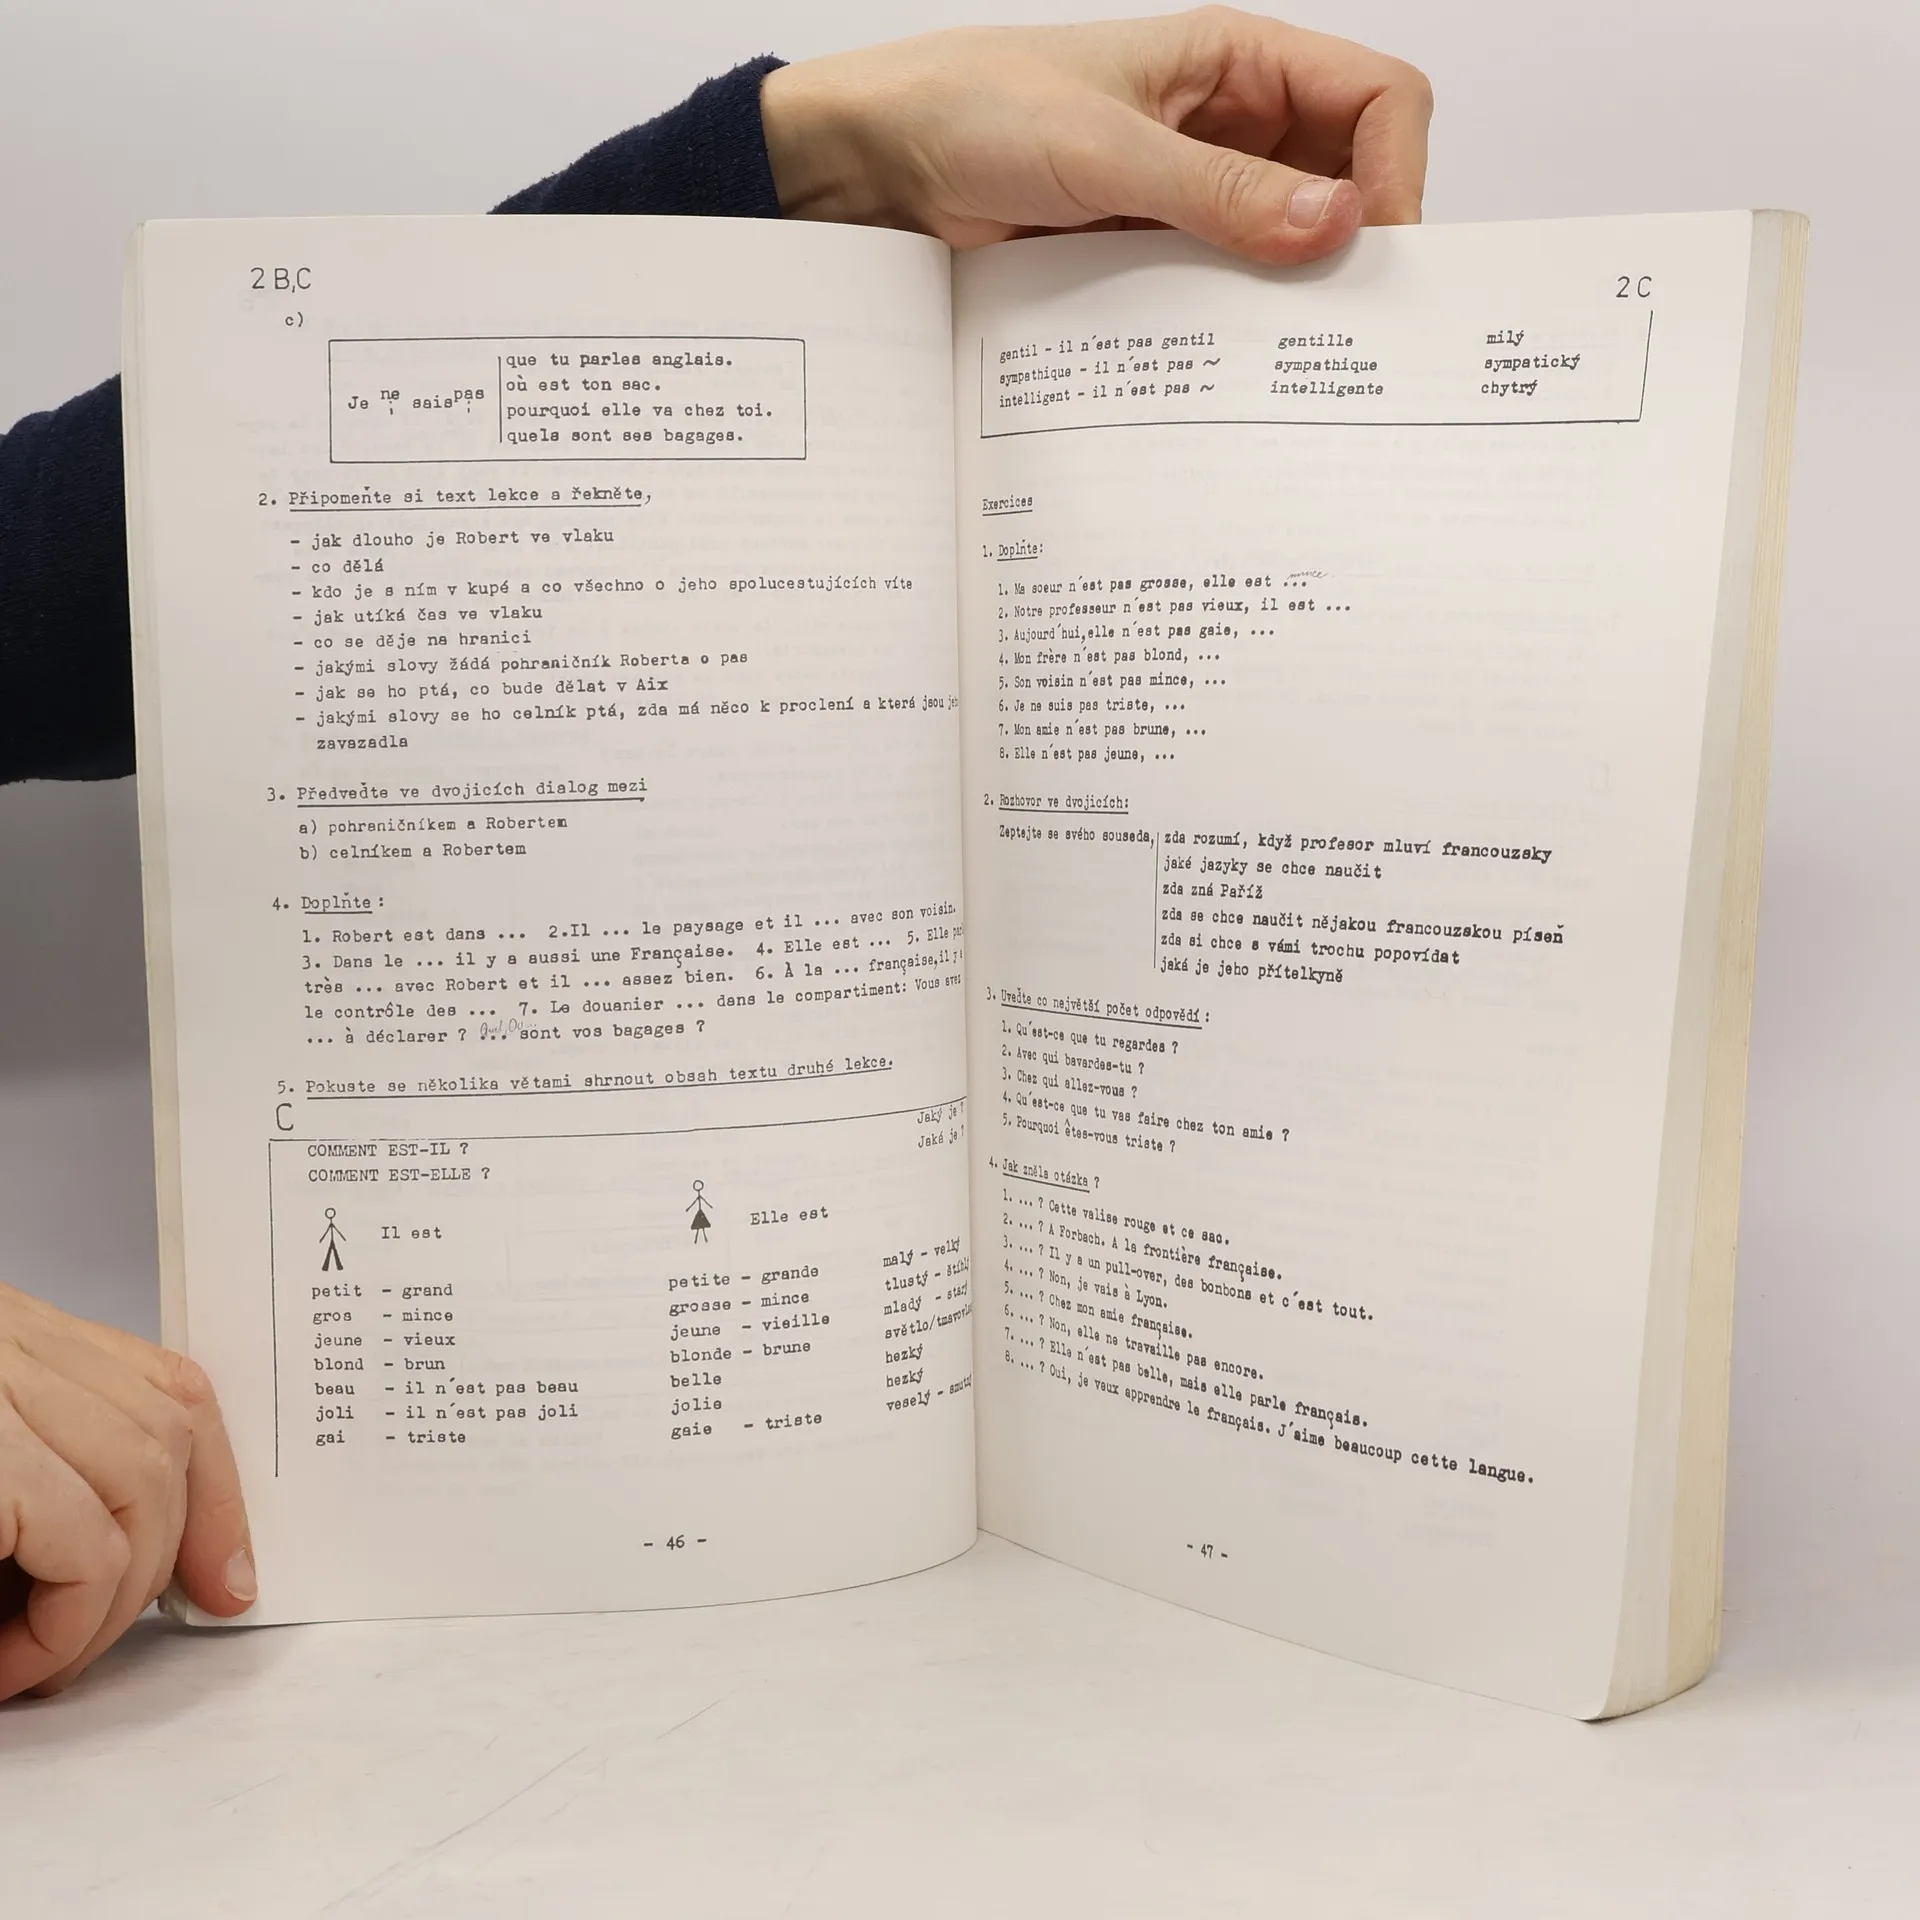 2 B,C
c)
Je ne sais pas
que tu parles anglais.
où est ton sac.
pourquoi elle va chez toi.
quels sont ses bagages.
2. Připomeňte si text lekce a řekněte,
- jak dlouho je Robert ve vlaku
- co dělá
- kdo je s ním v kupé a co všechno o jeho spolucestujících víte
- jak utíká čas ve vlaku
- co se děje na hranici
- jakými slovy žádá pohraničník Roberta o pas
- jak se ho ptá, co bude dělat v Aix
- jakými slovy se ho celník ptá, zda má něco k proclení a která jsou
zavazadla
3. Předveďte ve dvojicích dialog mezi
a) pohraničníkem a Robertem
b) celníkem a Robertem
4. Doplňte :
1. Robert est dans ... 2.Il ... le paysage et il ... avec son voisin.
3. Dans le ... il y a aussi une Française. 4. Elle est ... 5. Elle
très ... avec Robert et il ... assez bien. 6. À la ... française,il y
le contrôle des ... 7. Le douanier ... dans le compartiment: Vous
... à déclarer ? ... sont vos bagages ?
5. Pokuste se několika větami shrnout obsah textu druhé lekce.
C
Jaký je ?
COMMENT EST-IL ?
Jaká je ?
COMMENT EST-ELLE ?
Il est
Elle est
petit - grand petite - grande malý - velký
gros - mince grosse - mince tlustý -
jeune - vieux jeune - vieille mladý - starý
blond - brun blonde - brune
beau - il n´est pas beau belle hezký
joli - il n´est pas joli jolie hezký
gai - triste gaie - triste veselý -
- 46 -
2 C
gentil - il n´est pas gentil gentille milý
sympathique - il n´est pas ~ sympathique sympatický
intelligent - il n´est pas ~ intelligente chytrý
Exercices
1. Doplňte:
1. Ma soeur n´est pas grosse, elle est ... mince
2. Notre professeur n´est pas vieux, il est ...
3. Aujourd´hui,elle n´est pas gaie, ...
4. Mon frère n´est pas blond, ...
5. Son voisin n´est pas mince, ...
6. Je ne suis pas triste, ...
7. Mon amie n´est pas brune, ...
8. Elle n´est pas jeune, ...
2. Rozhovor ve dvojicích:
Zeptejte se svého souseda, zda rozumí, když profesor mluví francouzsky
jaké jazyky se chce naučit
zda zná Paříž
zda se chce naučit nějakou francouzskou píseň
zda si chce s vámi trochu popovídat
jaká je jeho přítelkyně
3. Uveďte co největší počet odpovědí :
1. Qu´est-ce que tu regardes ?
2. Avec qui bavardes-tu ?
3. Chez qui allez-vous ?
4. Qu´est-ce que tu vas faire chez ton amie ?
5. Pourquoi êtes-vous triste ?
4. Jak zněla otázka ?
1. ... ? Cette valise rouge et ce sac.
2. ... ? A Forbach. A la frontière française.
3. ... ? Il y a un pull-over, des bonbons et c´est tout.
4. ... ? Non, je vais à Lyon.
5. ... ? Chez mon amie française.
6. ... ? Non, elle ne travaille pas encore.
7. ... ? Elle n´est pas belle, mais elle parle français.
8. ... ? Oui, je veux apprendre le français. J´aime beaucoup cette langue.
- 47 -